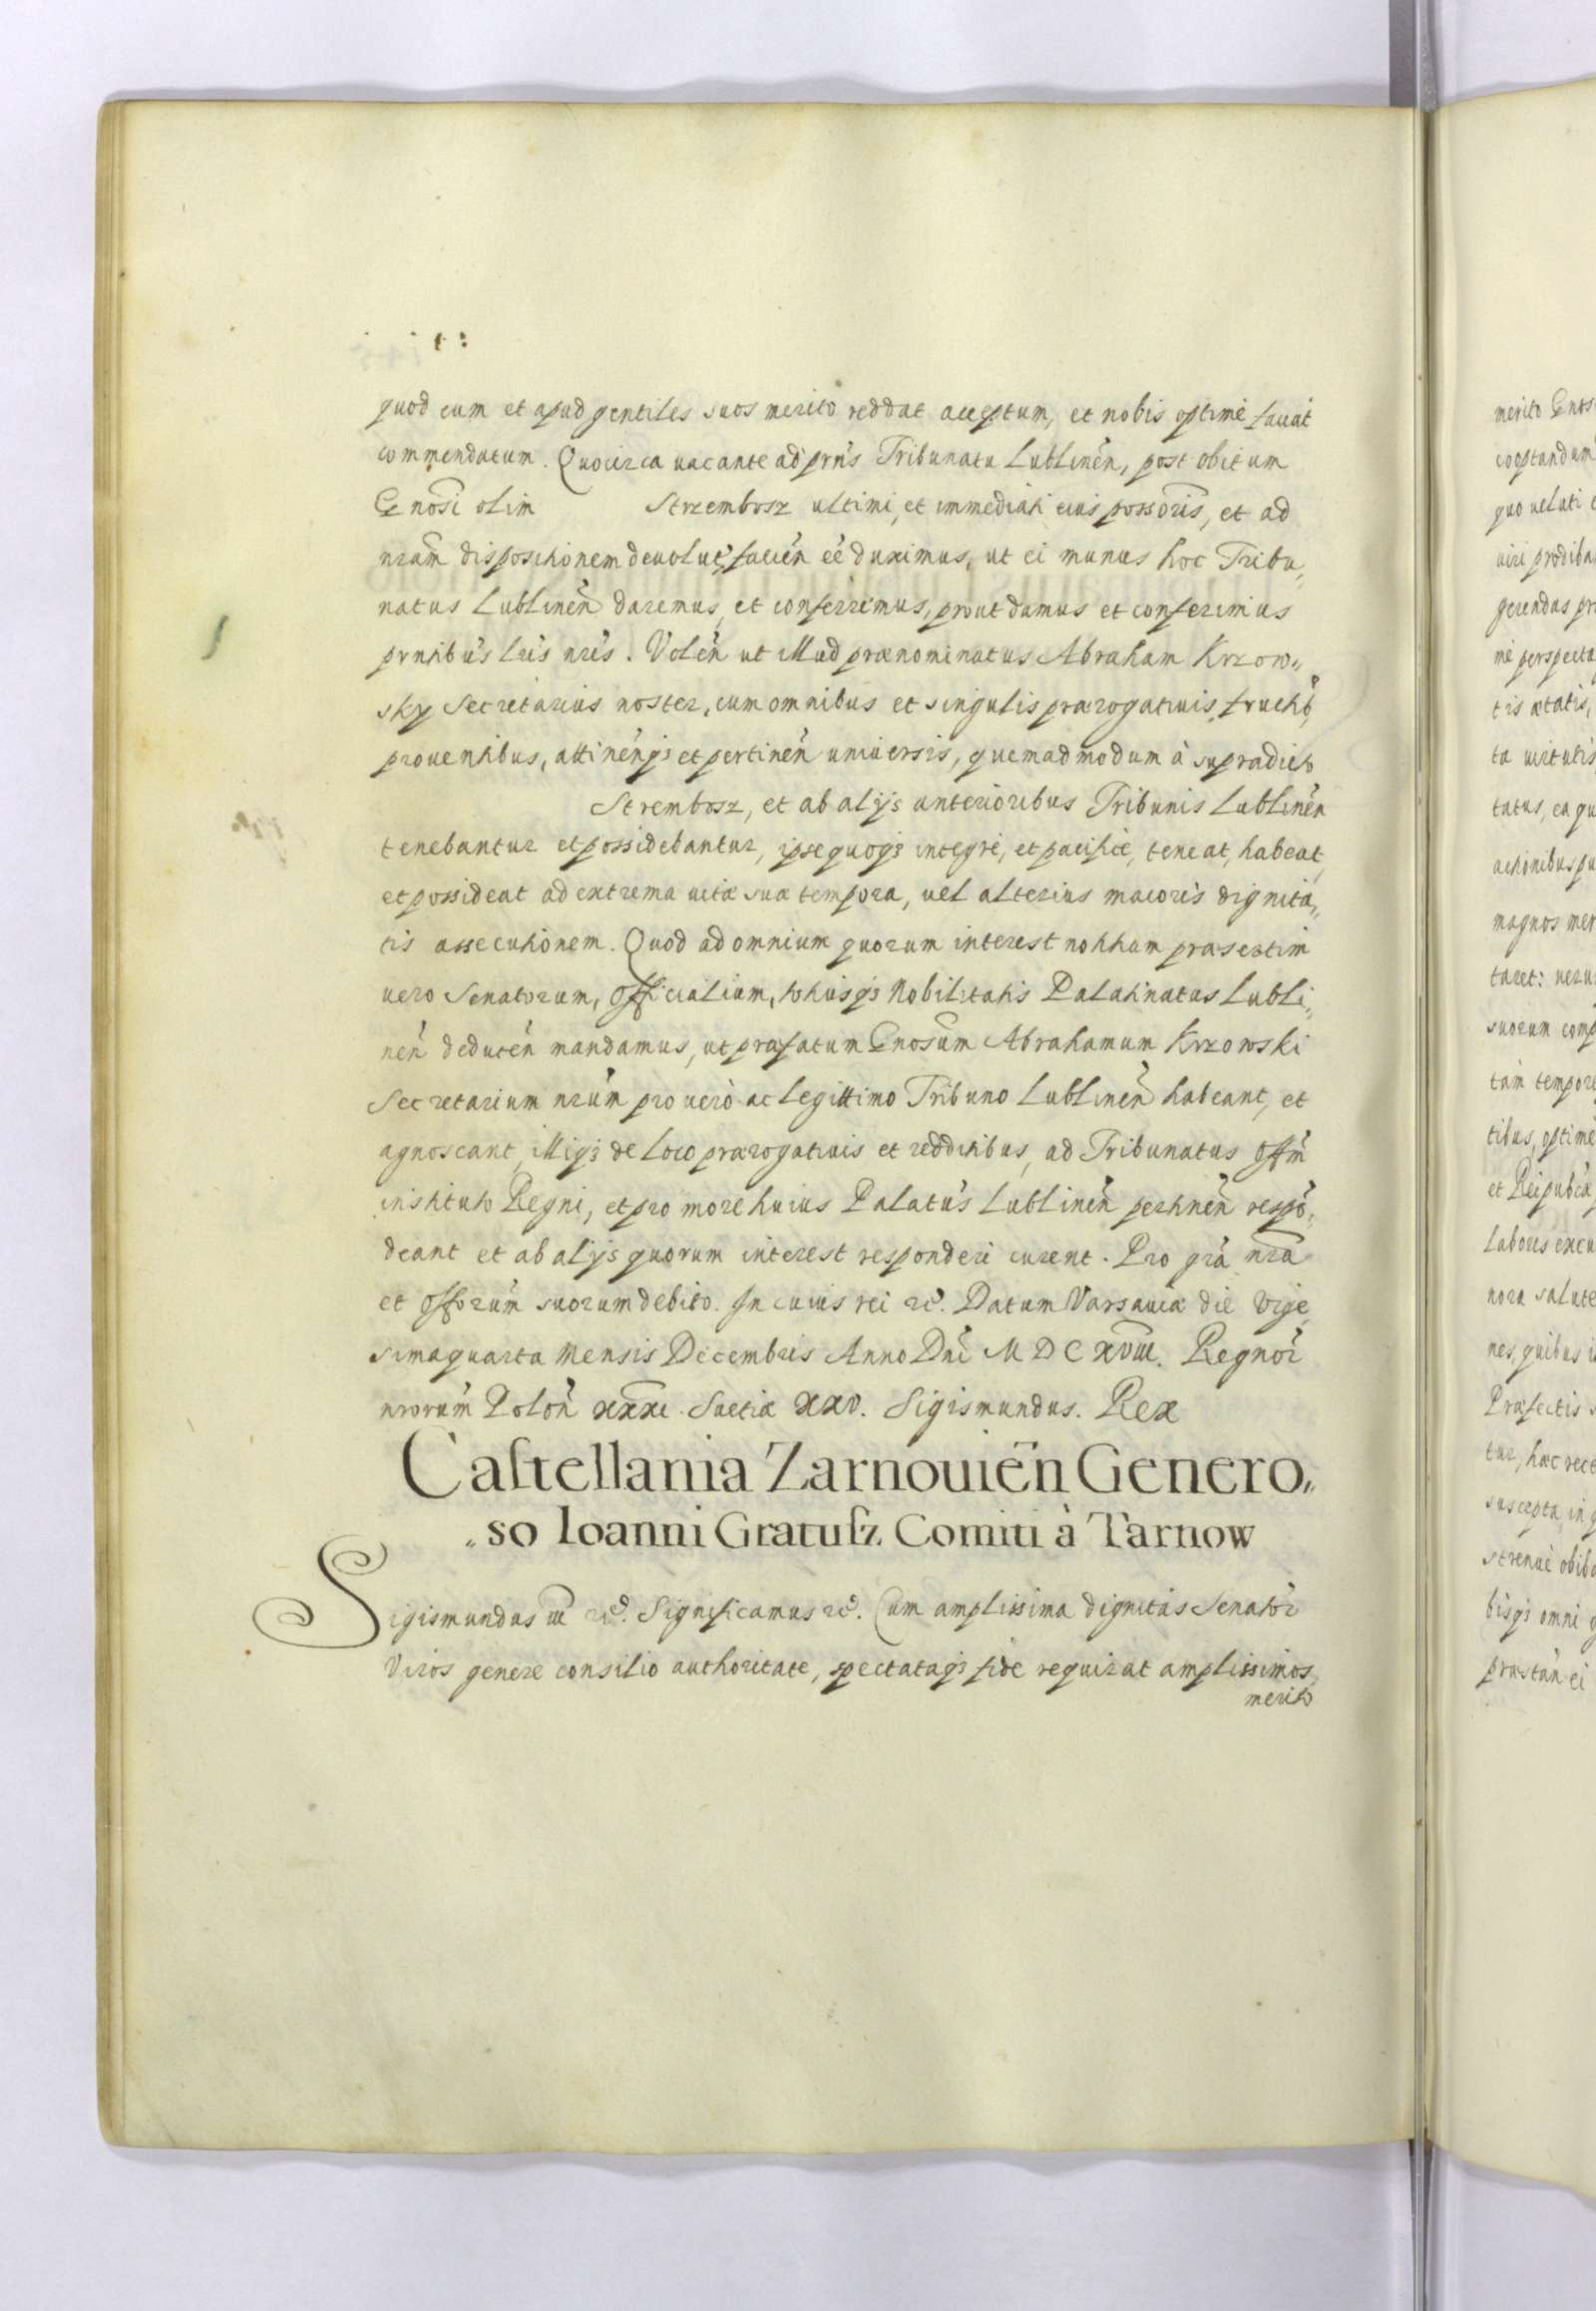 quod eum et apud gentiles suos merito reddat acceptum, et nobis optimè faciat
commendatum. Quocirca uacante ad prńs Tribunatu Lublineń, post obitum
Gnosi olim Strzembosz ultimi, et immediati eius possoris, et ad
nram dispositionem deuolut, facień eé duximus, ut ei munus hoc Tribu„
natus Lublineń daremus, et conferremus, prout damus et conferimus
prntibus lris nris. Voleń ut illud prænominatus Abraham Krzow„
sky Secretarius noster, cum omnibus et singulis prærogatiuis, fructib,
prouentibus, attineńgs et pertineń uniuersis, quemadmodum à supradicto
Strembosz, et ab alijs anterioribus Tribunis Lublineń
tenebantur et possidebantur, ipse quoqs integrè, et pacificè, teneat, habeat,
et possideat ad extrema uitæ suæ tempora, uel alterius maioris dignita„
tis assecutionem. Quod ad omnium quorum interest notitiam præsertim
uero Senatorum, Officialium, totiusqs Nobilitatis Palatinatus Lubli„
neń deduceń mandamus, ut præfatum Gnosum Abrahamum Krzowski
Secretarium nrum pro uerò ac legittimo Tribuno Lublineń habeant, et
agnoscant, illiqs de loco prærogatiuis et redditibus, ad Tribunatus Offm
instituto Regni, et pro more huius Palatus Lublineń pertineń respo„
deant et ab alijs quorum interest responderi curent. Pro gra nra
et Offorum suorum debito. In cuius rei rc. Datum Varsauiæ die Vige
simaquarta Mensis Decembris Anno Dni M D C XVIII. Regnor
nrorum Poloń XXXI. Suetiæ XXV. Sigismundus. Rex
Castellania Zarnouień Genero„
„so Ioanni Gratusz Comiti à Tarnow
Sigismundus III rc. Significamus rc. Cum amplissima dignitas Senator
Viros genere consilio authoritate, spectataqs fide requirat amplissimos,
merito